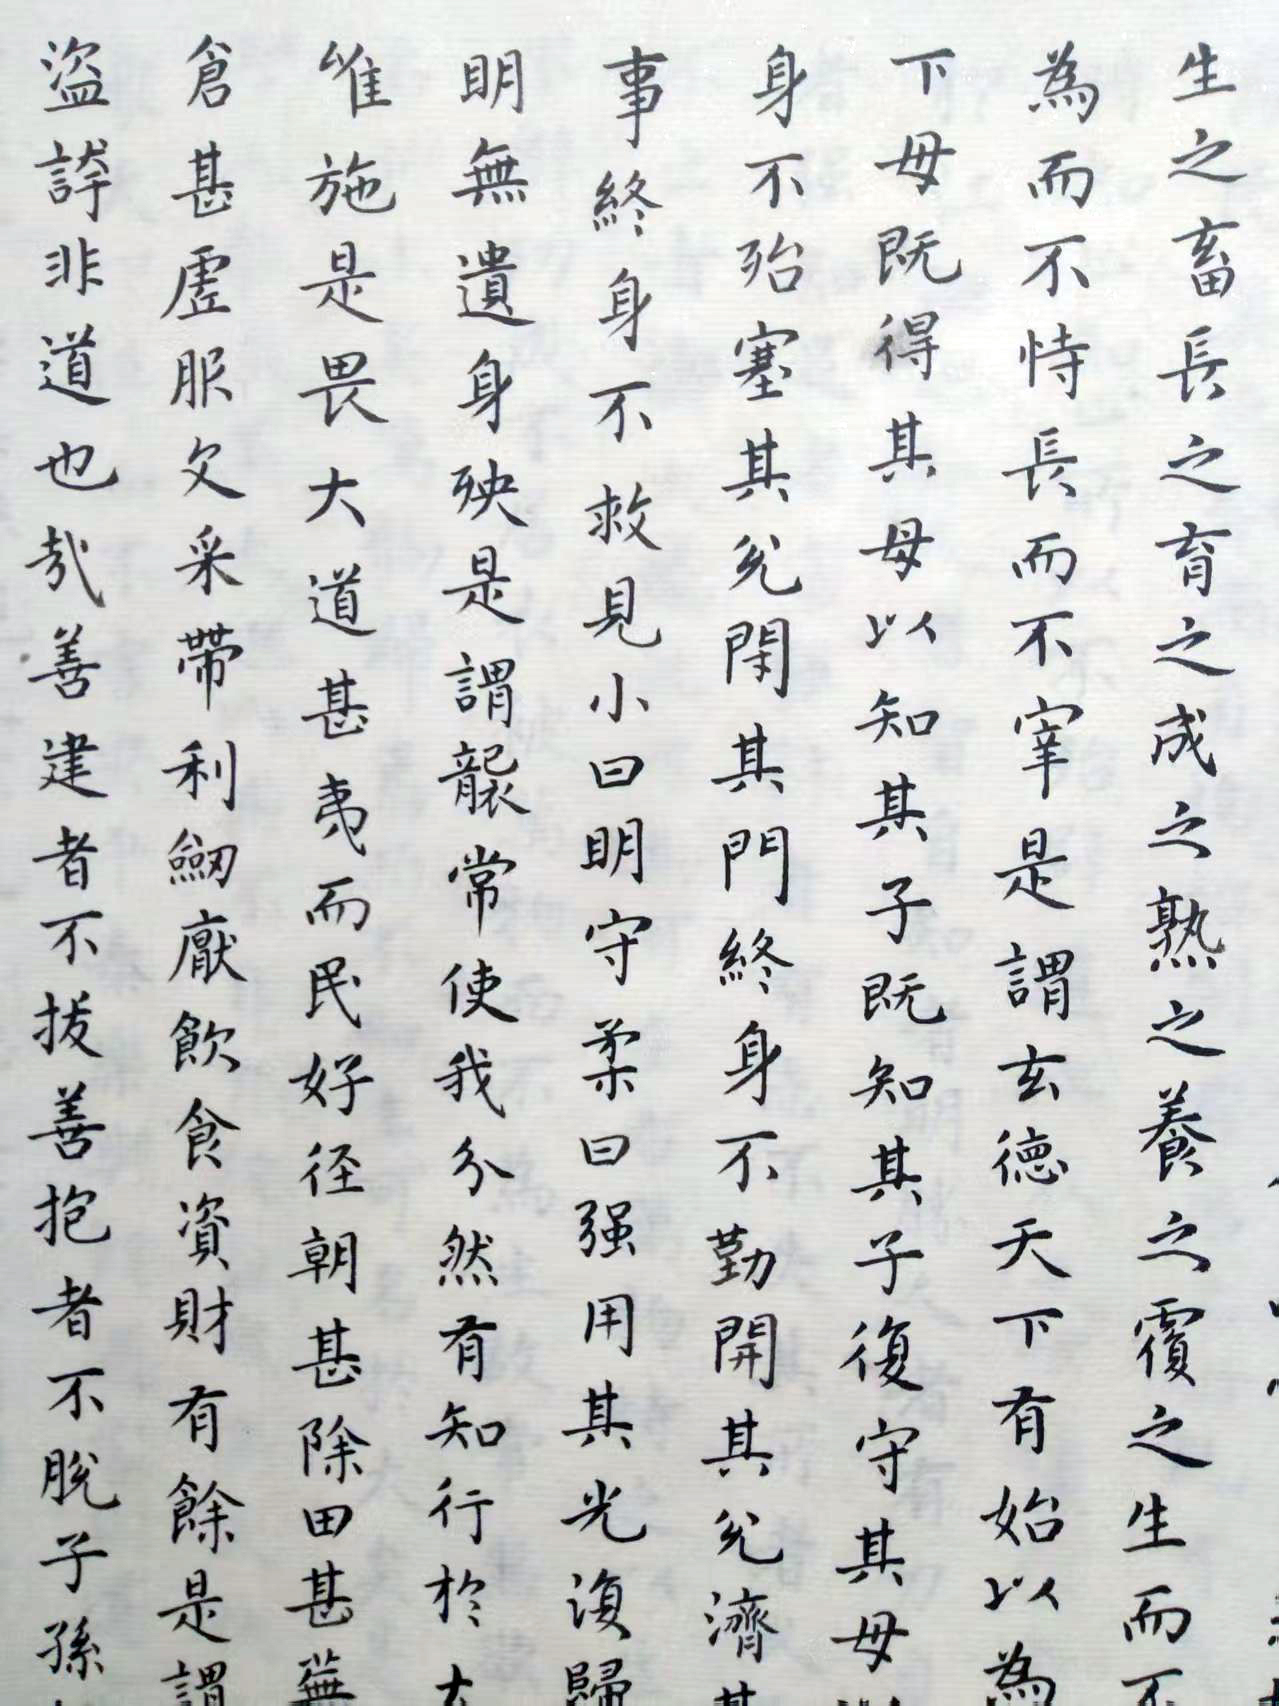 生之畜長之育之成之熟之養之覆之生而不
為而不恃長而不宰是謂玄德天下有始以為
下母既得其母以知其子既知其子復守其母
身不殆塞其兌閉其門終身不勤開其兌濟其
事終身不救見小曰明守柔曰强用其光復歸
明無遺身殃是謂襲常使我介然有知行於大
唯施是畏大道甚夷而民好径朝甚除田甚蕪
倉甚虛服文采帶利劒厭飲食資財有餘是謂
盜誇非道也哉善建者不拔善抱者不脫子孫